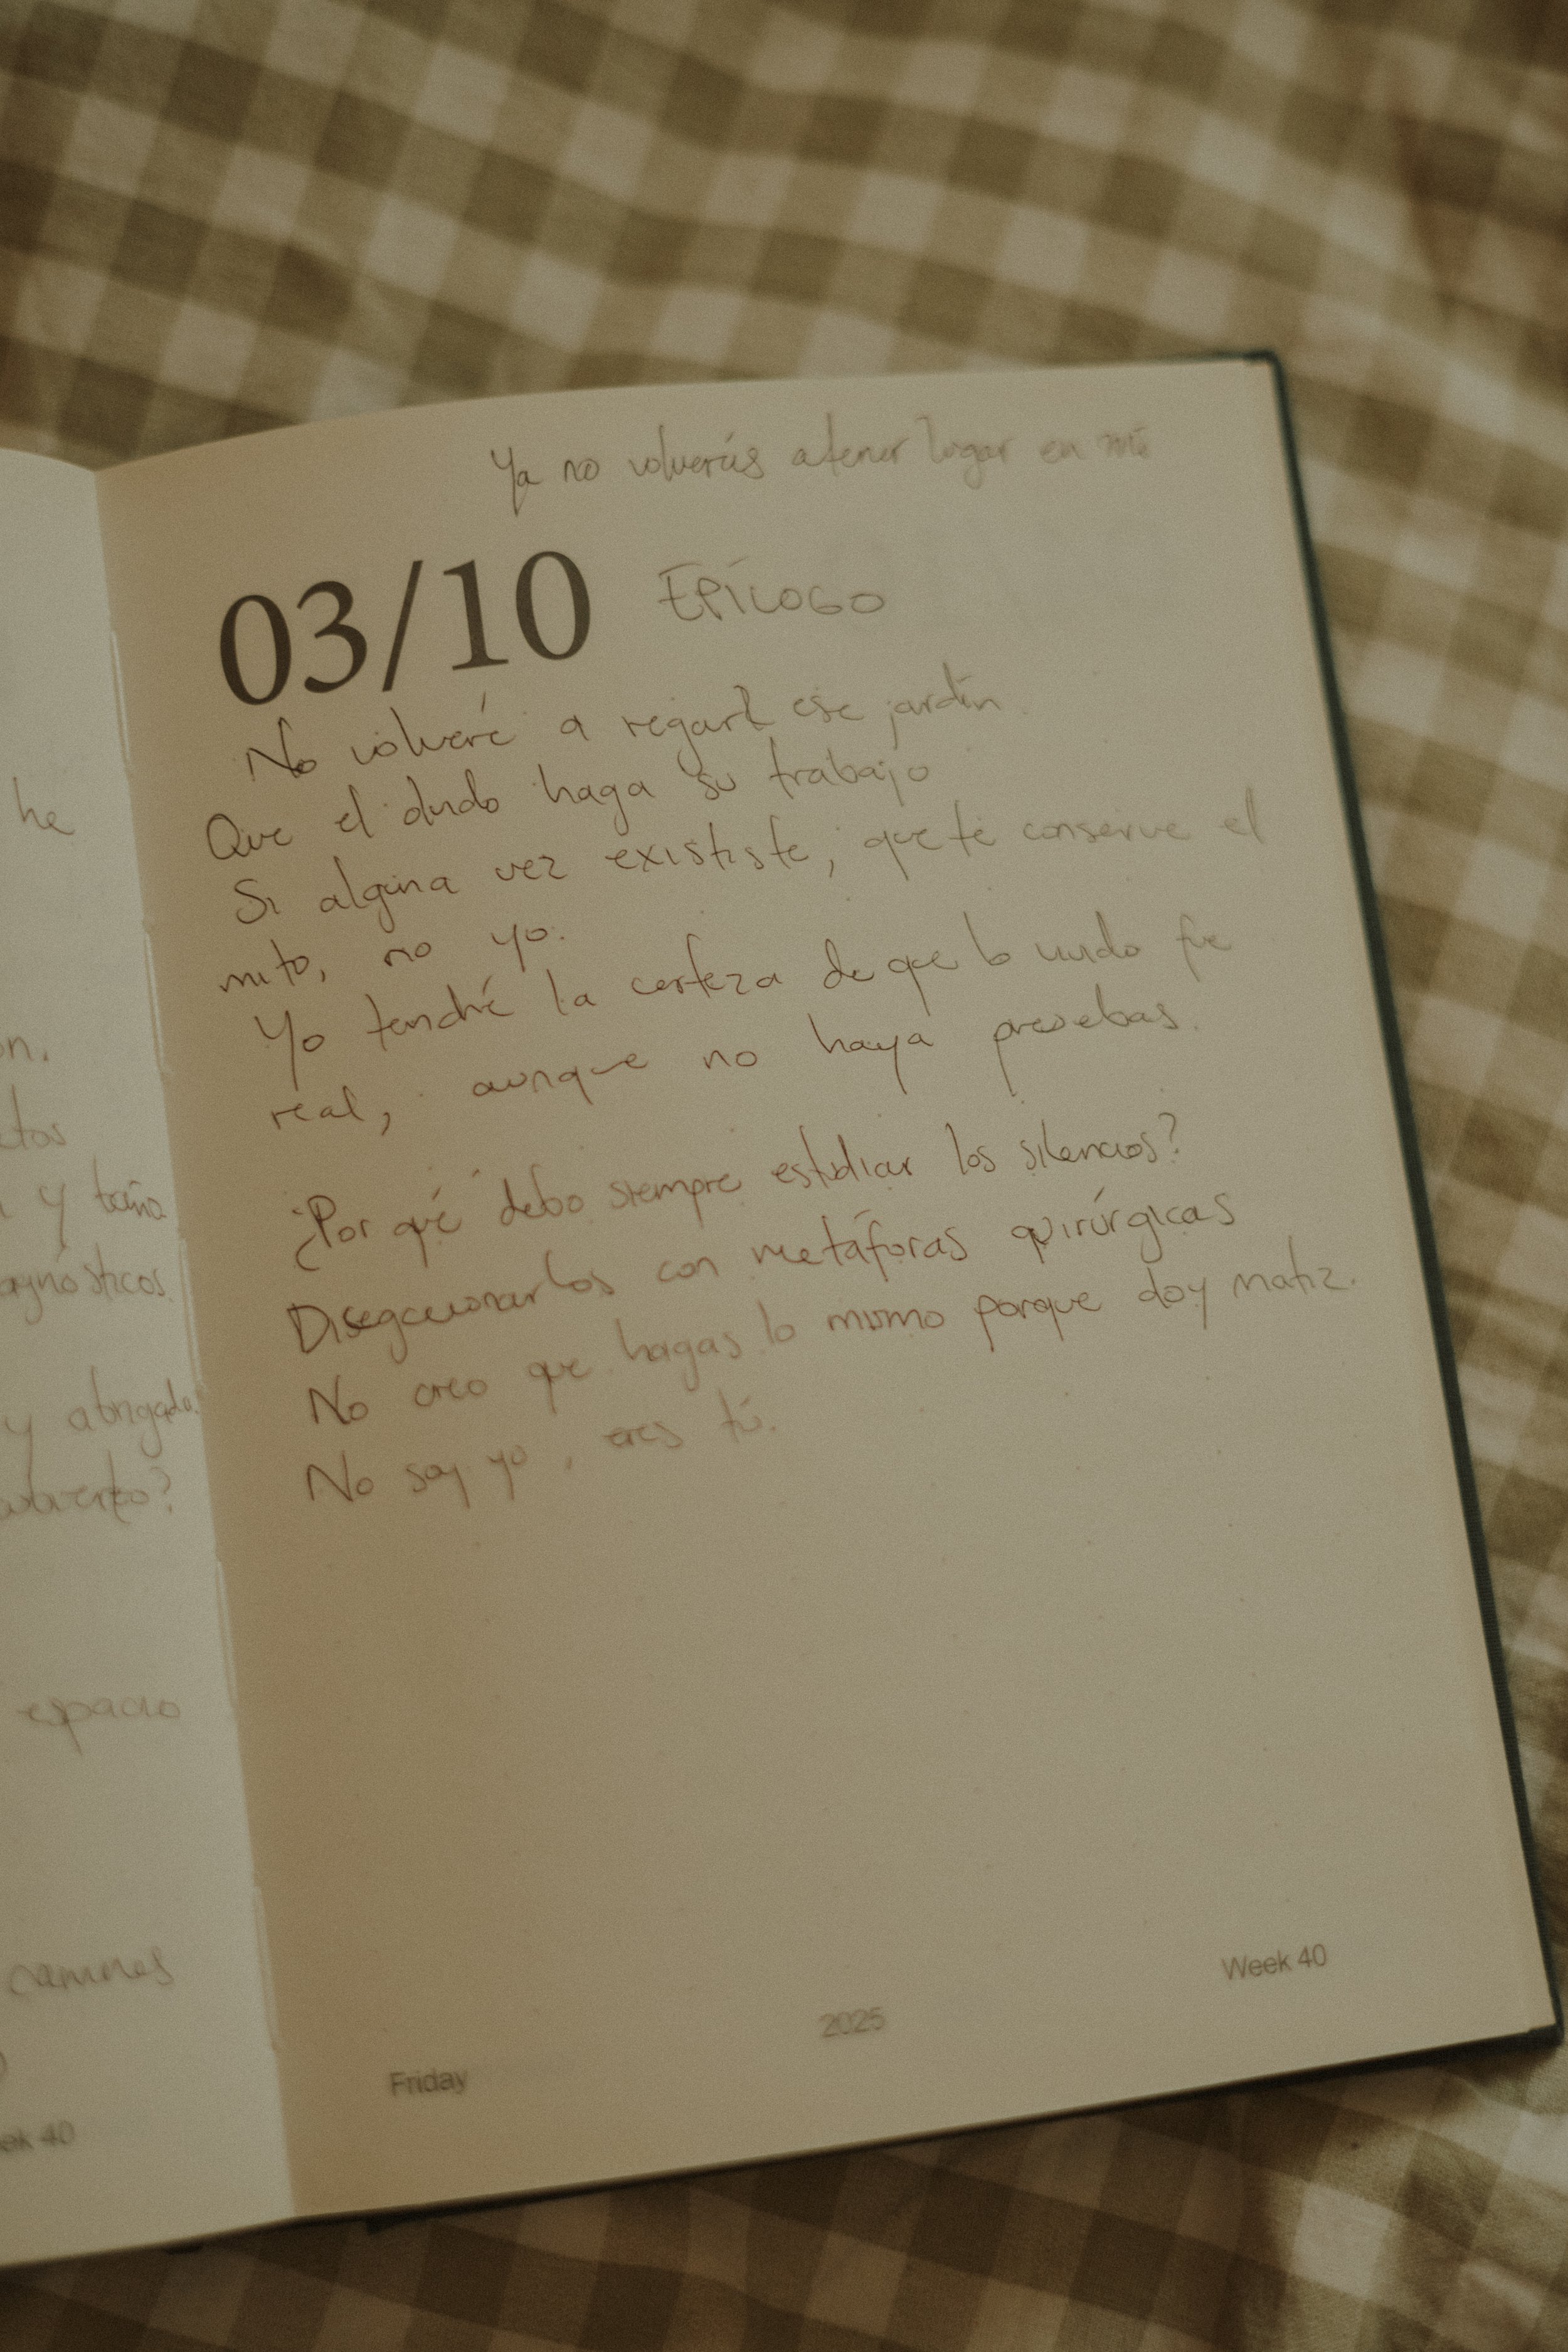 he
on.
y
agnósticos.
y abrigada.
espacio
camines
ek 40
Ya no volverás a tener lugar en mí
03/10 EPÍLOGO
No volveré a regar ese jardín.
Que el dudo haga su trabajo
Si alguna vez exististe, que te conserve el
mito, no yo.
Yo tendré la certeza de que lo vivido fue
real, aunque no haya pruebas.
¿Por qué debo siempre estudiar los silencios?
con metáforas quirúrgicas
No creo que hagas lo mismo porque doy matiz.
No soy yo, eres tú.
Week 40
2025
Friday